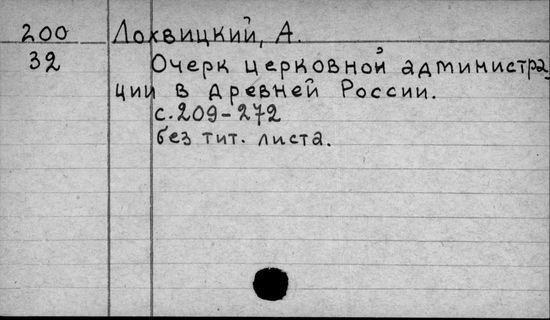 200 Лохвицкий, А.
32 Очерк церковной администра
ции в древней России.
с. 209-272
без тит. листа.